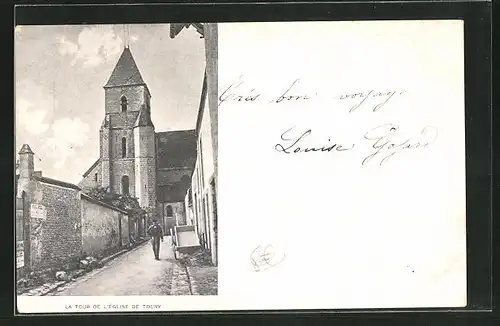 Très bon voyage
Louise Gofard
LA TOUR DE L'ÉGLISE DE TOURY